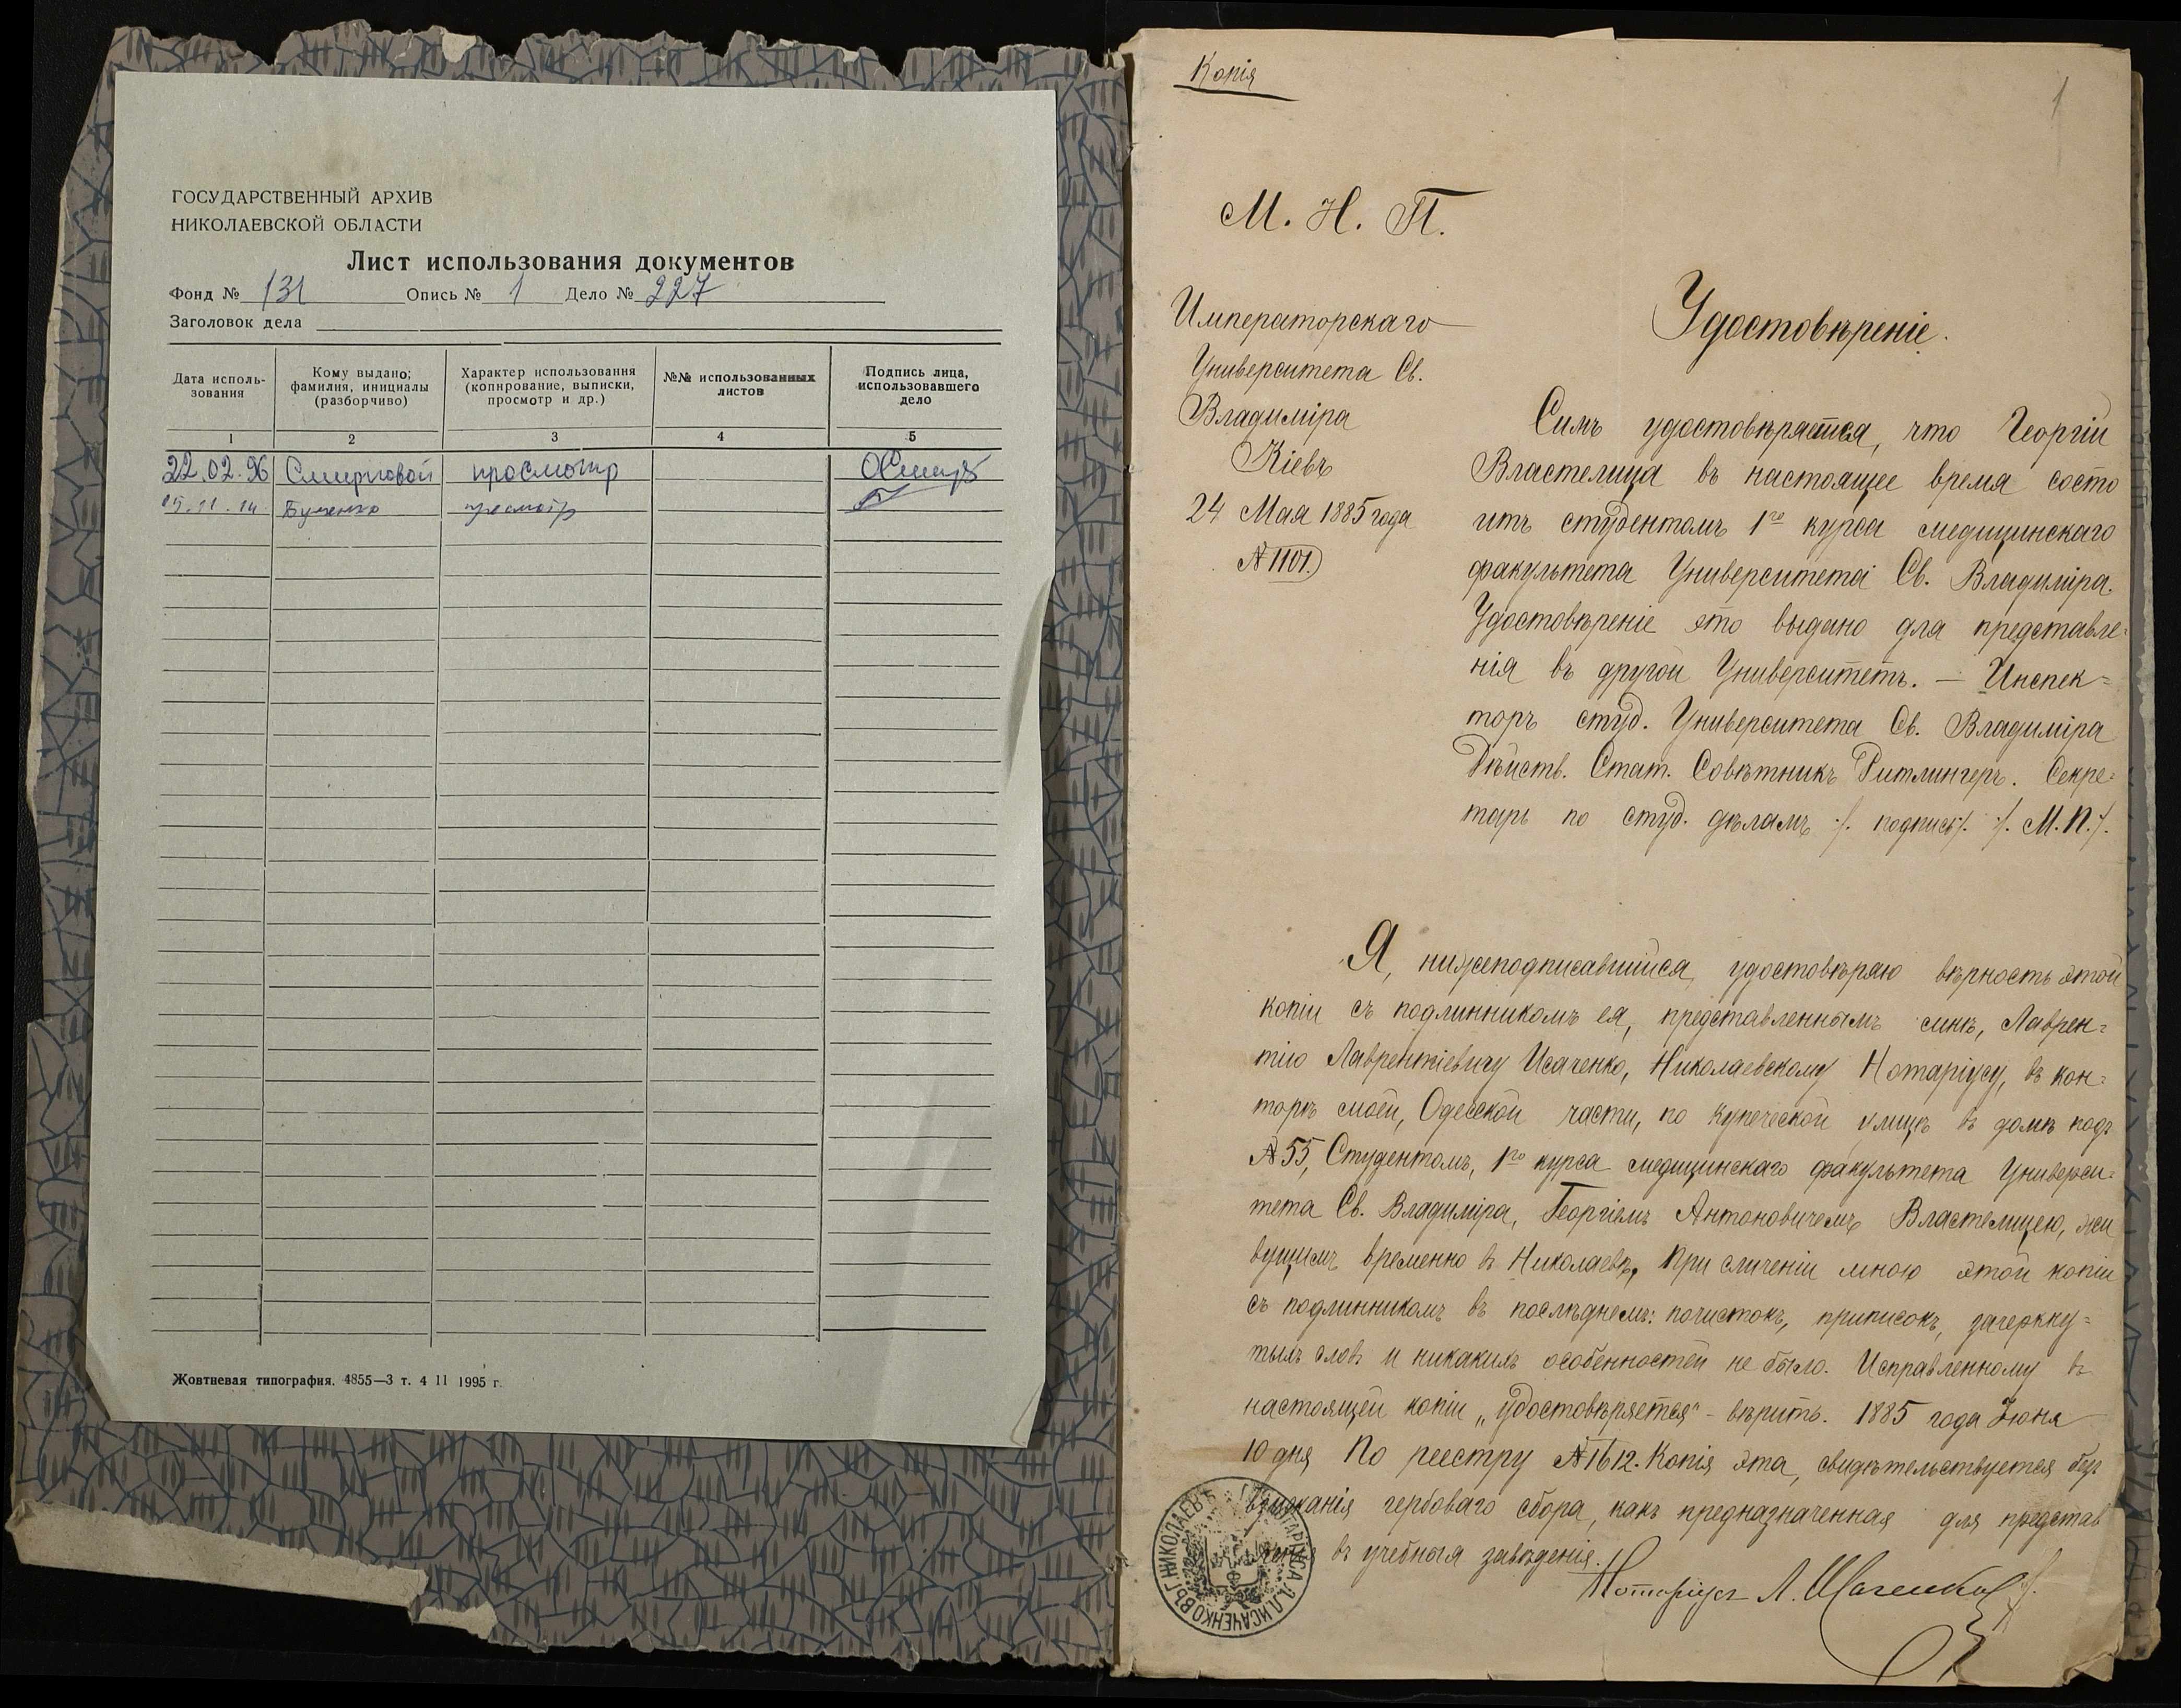 ГОСУДАРСТВЕННЫЙ АРХИВ
НИКОЛАЕВСКОЙ ОБЛАСТИ
Лист использования документов
Фонд № 131 Опись № 1 Дело № 227
Заголовок дела
Дата исполь-
зования
Кому выдано;
фамилия, инициалы
(разборчиво)
Характер использования
(копирование, выписки,
просмотр и др.)
№№ использованных
листов
Подпись лица,
использовавшего
дело
1 2 3 4 5
22.02.96 Смирновой просмотр
просмотр
Жовтневая типография. 4855—3 т. 4 II 1995 г.
Копія
1
М. Н. П.
Императорскаго
Университета Св.
Владиміра
Кіевъ
24 Мая 1885 года
№ 1101.
Удостовѣреніе.
Симъ удостовѣряется, что Георгій
Властелица въ настоящее время состо
итъ студентомъ 1го курса медицинскаго
факультета Университета Св. Владиміра.
Удостовѣреніе это выдано для представле=
нія въ другой Университетъ. — Инспек=
торъ студ. Университета Св. Владиміра
Дѣйств. Стат. Совѣтникъ Ритлингеръ. Секре=
тарь по студ. дѣламъ /. подпись/. /. М. П. /.
Я, нижеподписавшійся, удостовѣряю вѣрность этой
копіи съ подлинникомъ ея, представленнымъ мнѣ, Лаврен=
тію Лаврентіевичу Исаченко, Николаевскому Нотаріусу, въ кон=
торѣ моей, Одесской части, по Купеческой улицѣ въ домѣ подъ
№ 55, Студентомъ, 1го курса медицинскаго факультета Универси=
тета Св. Владиміра, Георгіемъ Антоновичемъ Властелицею, жи
вущимъ временно въ Николаевѣ, При сличеніи мною этой копіи
съ подлинникомъ въ послѣднемъ: почистокъ, приписокъ, зачеркну=
тыхъ словъ и никакихъ особенностей не было. Исправленному въ
настоящей копіи „удостовѣряется" - вѣрить. 1885 года Іюня
10 дня По реестру № 1612. Копія эта, свидѣтельствуется безъ
взысканія гербоваго сбора, какъ предназначенная для представ
ленія въ учебныя заведенія.
Нотаріусъ Л. Исаченко
НОТАРІУСА Л. Л. ИСАЧЕНКО ВЪ Г. НИКОЛАЕВѢ